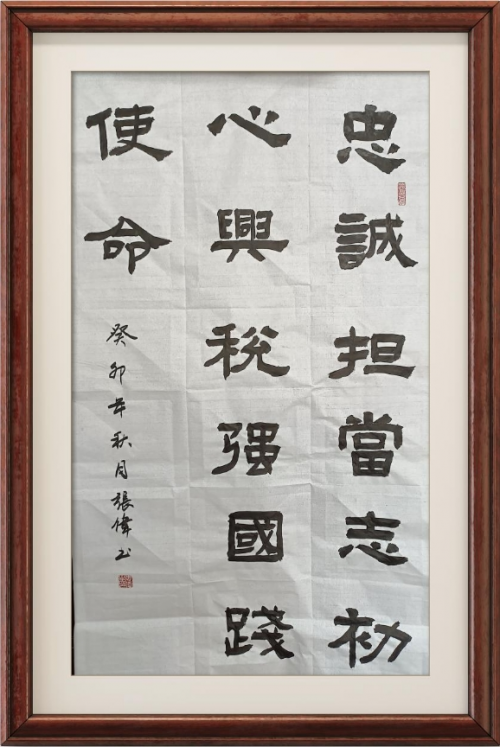 忠誠担當志初
心興税强國踐
使命
癸卯年秋月張偉书